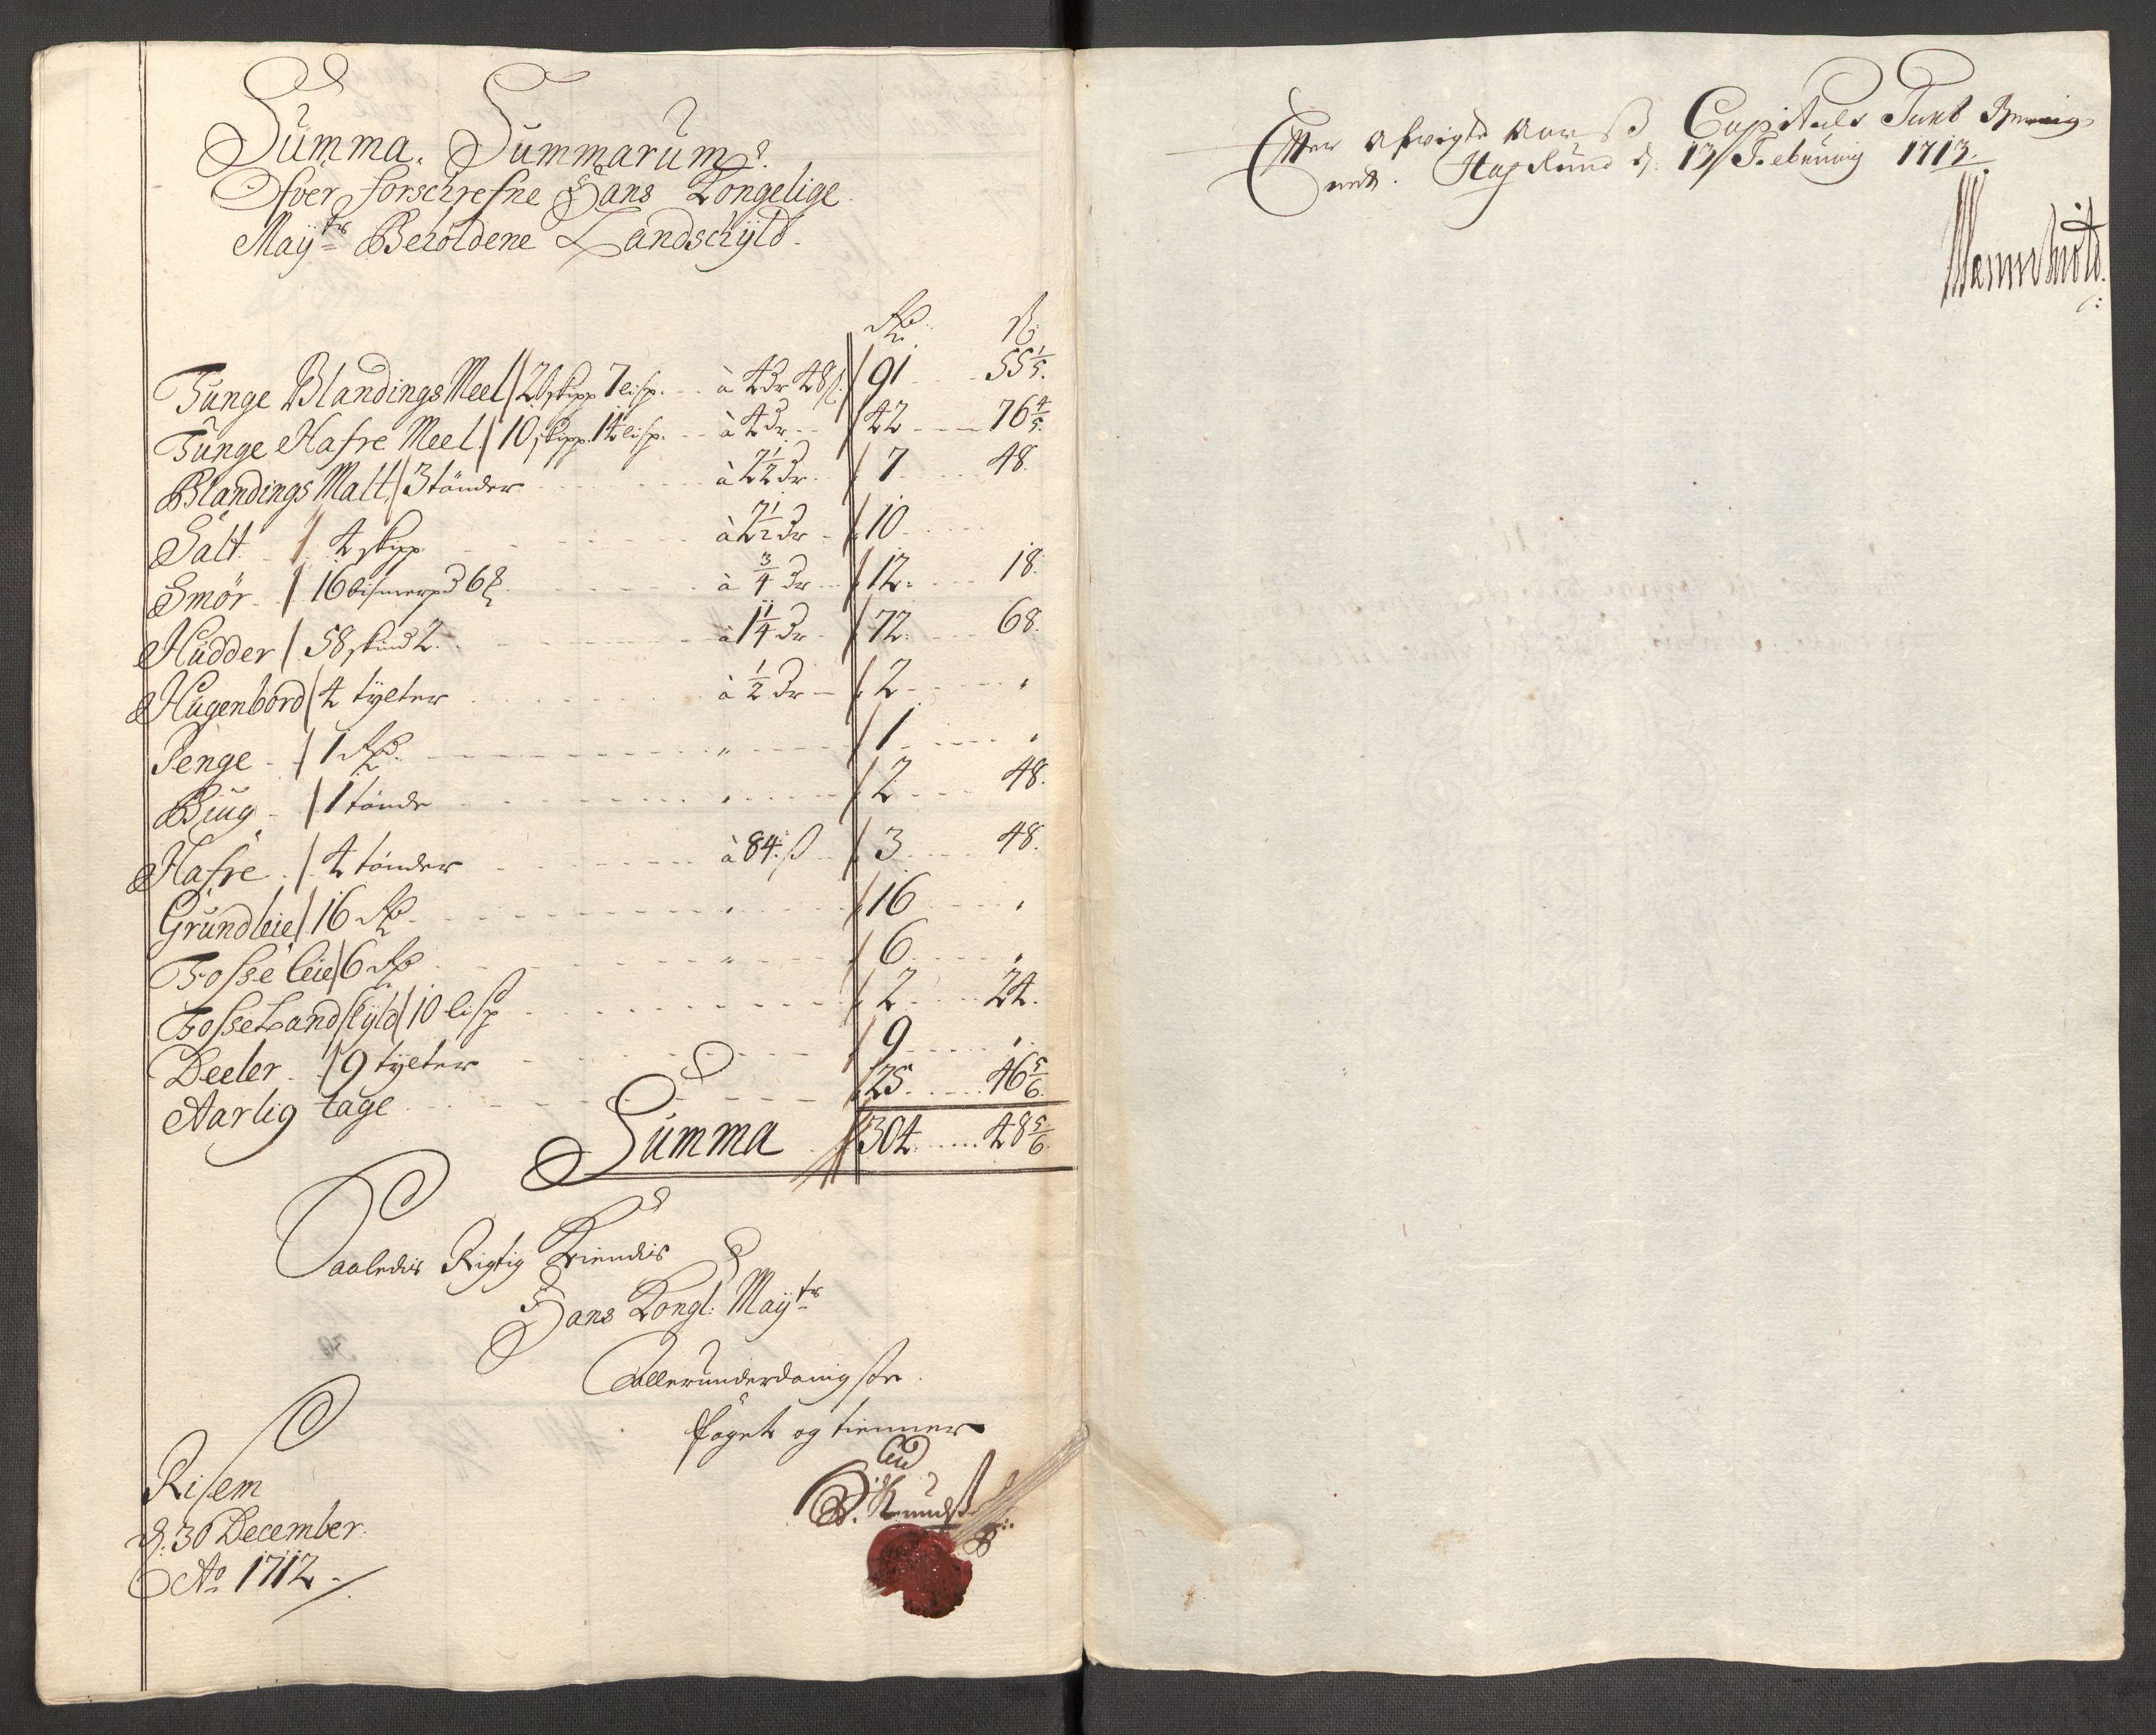 Summa. Summarum
Ofver forschrefne Hans Kongelige
Maÿtˢ Beholdene Landschÿld.
Rdr. ß
Tunge Blandings Meel / 20 skipp 7 lisp. à 4 dr 48 ß / 91 55 1/5.
Tunge Hafre Meel / 10 skipp. 14 lisp. à 4 dr / 42 76 4/5.
Blandings Malt / 3 tönder à 2 1/2 dr / 7 48.
Salt / 4 skipp à 2 1/2 dr / 10
Smör / 16 bismerpd 6 à 3/4 dr / 12. 18.
Hüdder / 58 skind 2. à 1 1/4 dr / 72. 68.
Hugenbord / 4 tÿlter à 1/2 dr / 2
Penge / 1 Rdr. / 1
Biug / 1 tönde / 2 48.
Hafre / 4 tönder à 84 ß / 3 48.
Grundleie / 16 Rdr / 16
Fosse leie / 6 Rdr / 6
Fosse Landskÿld / 10 lisp / 2 24.
Deeler / 9 tÿlter / 9
Aarlig tage 25. 46 5/6.
Summa 304. 48 5/6.
Saaledis Rigtig Kiendis
Hans Kongl: Maÿtˢ
Allerunderdanigste
foget og tienner
Risem
d. 30 December
Ao 1712
Efter afvigte Aarß Capituls
Hafslund d: 13 Februarij 1713.